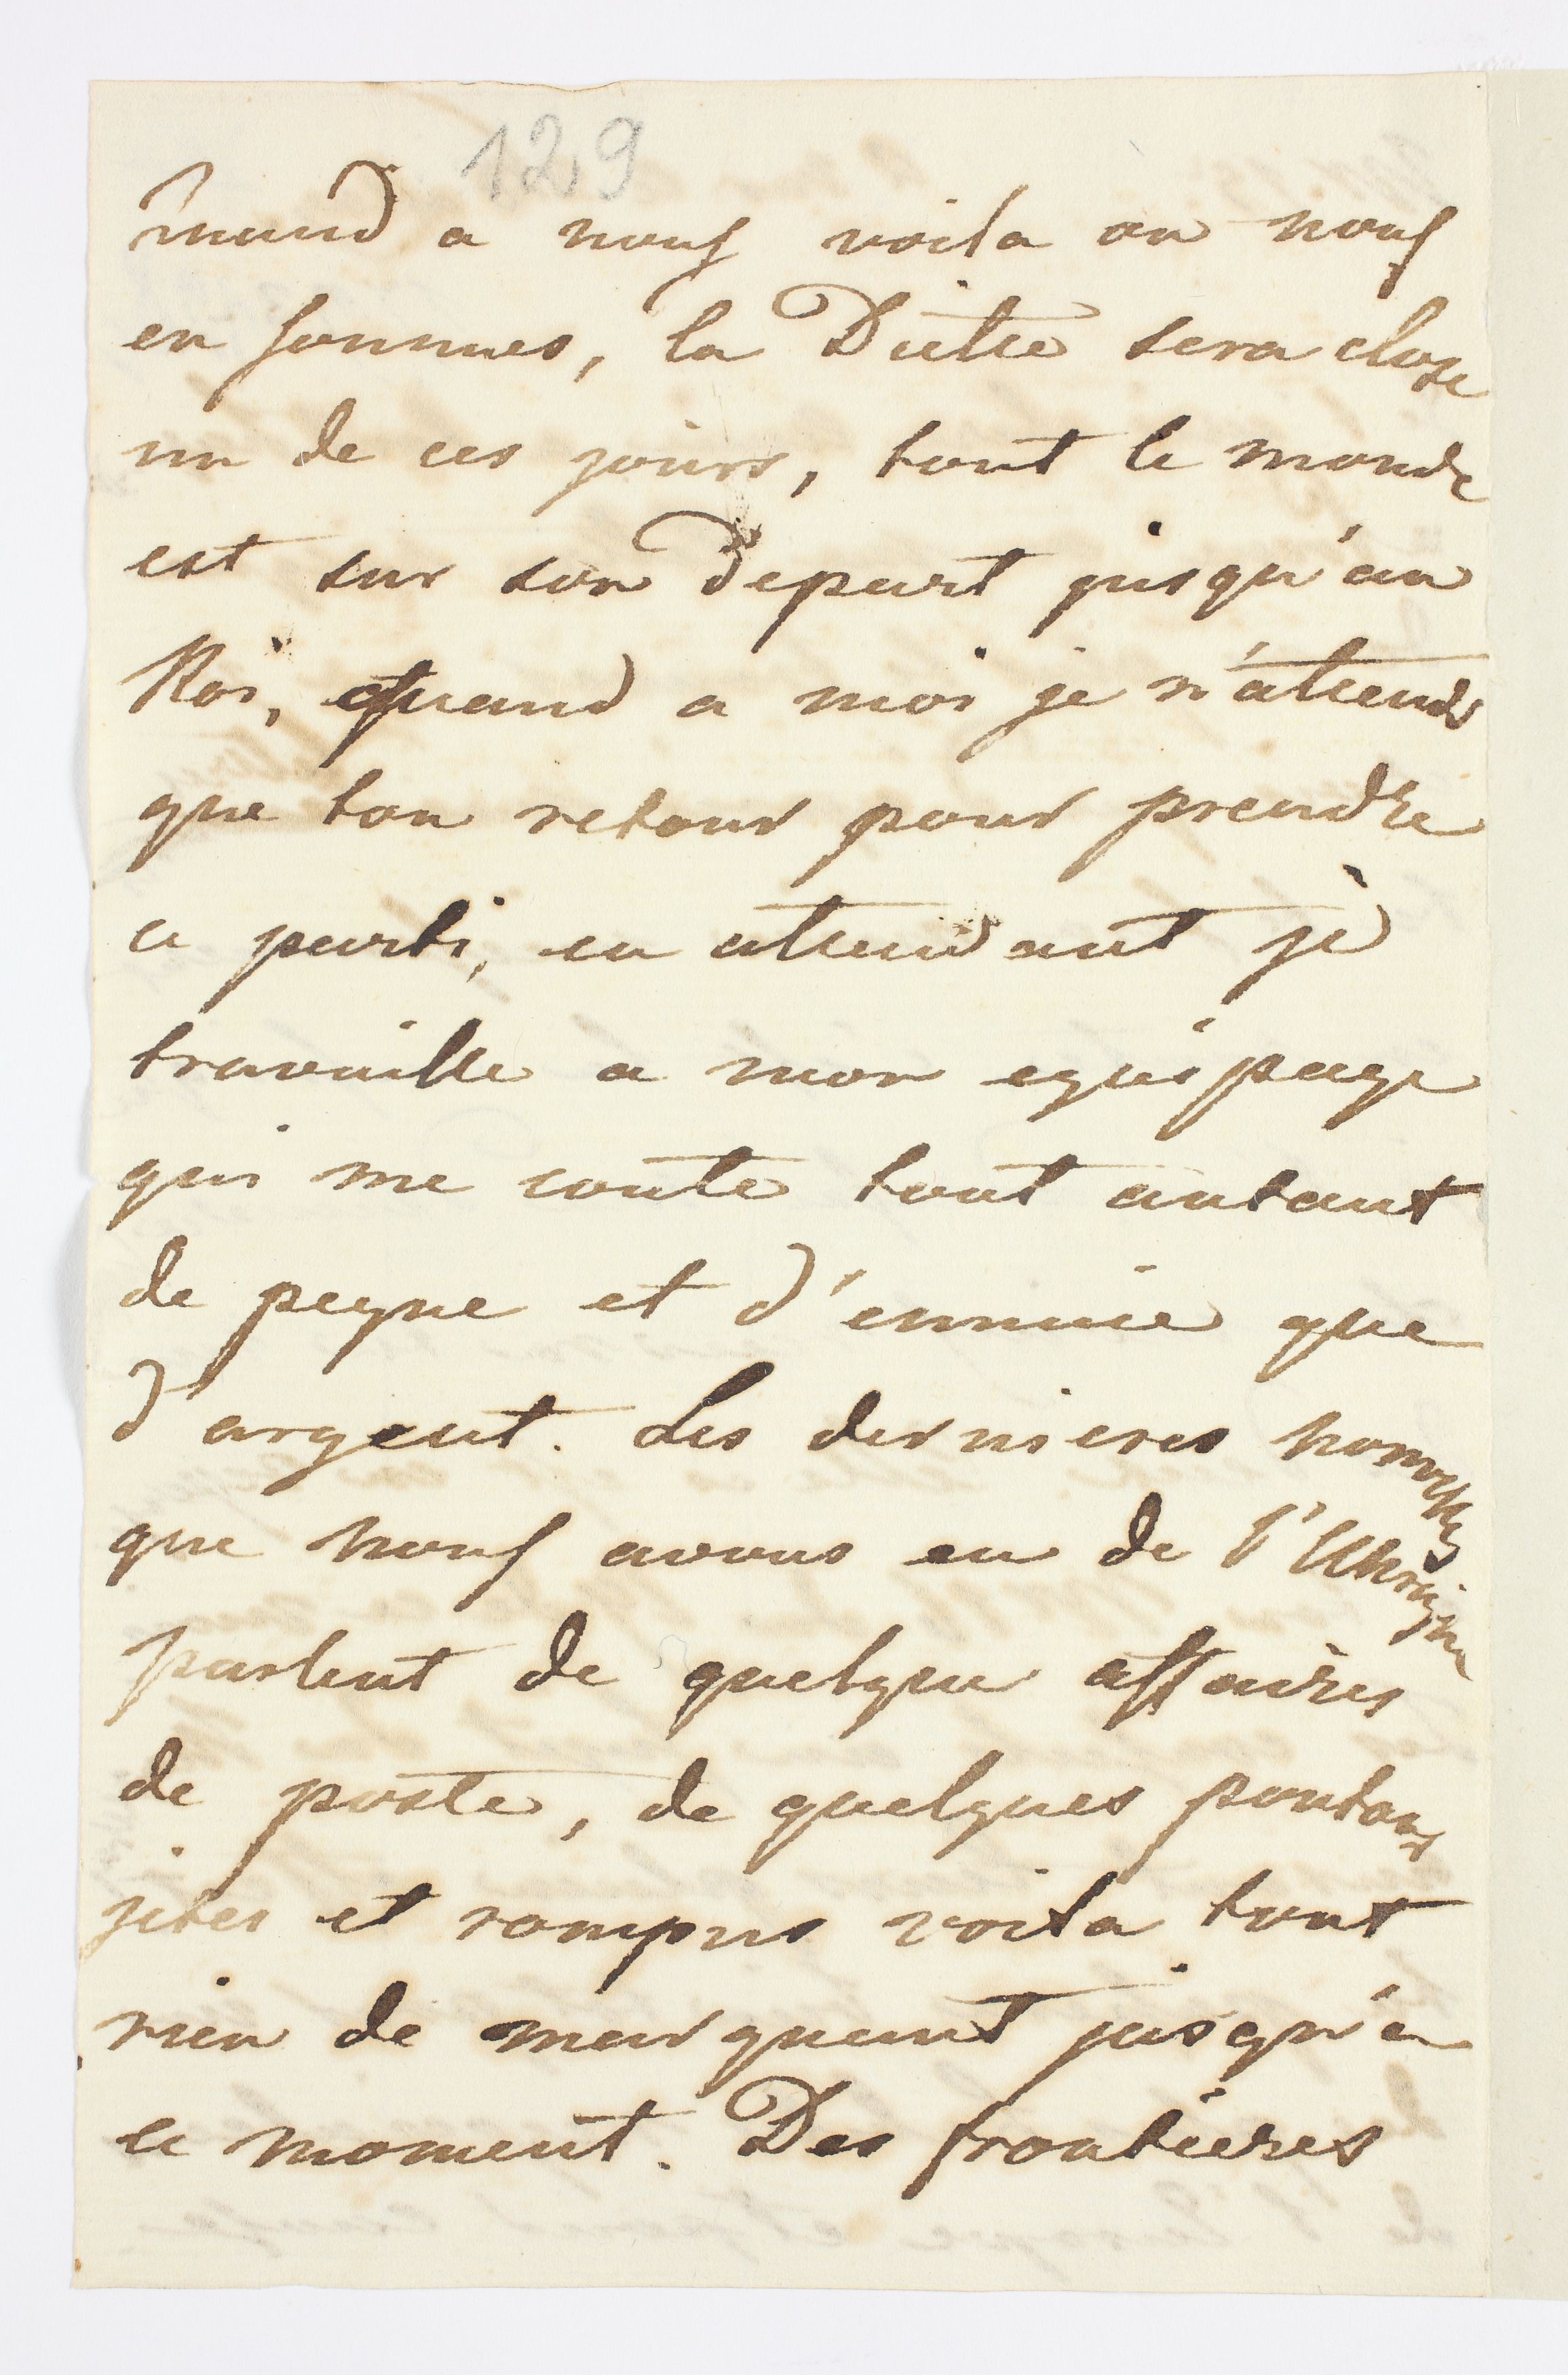 129
mand a nous voila ou nous
en sommes, la Diette sera close
un de ces jours, tout le monde
est sur son depart jusqu'au
Roi, quand a moi je n'attends
que ton retour pour prendre
ce parti, en attendant je
travaille a mon equipage
qui me coute tout autant
de peyne et d'ennuie que
d'argent. Les dernieres nouvelles
que nous avons eu de l'Ukrayne
parlent de quelque affaires
de poste, de quelques pontons
jetes et rompus voila tout
rien de marquant jusqu'a
ce moment. Des frontieres